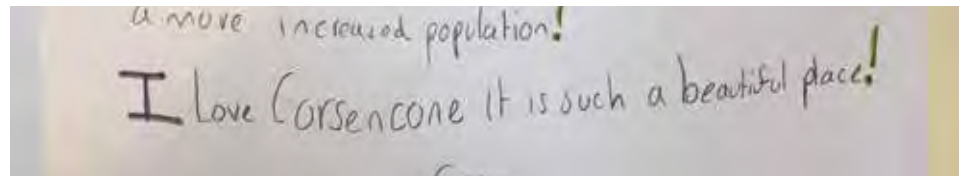 a more increased population!
I love Corsencone it is such a beautiful place!